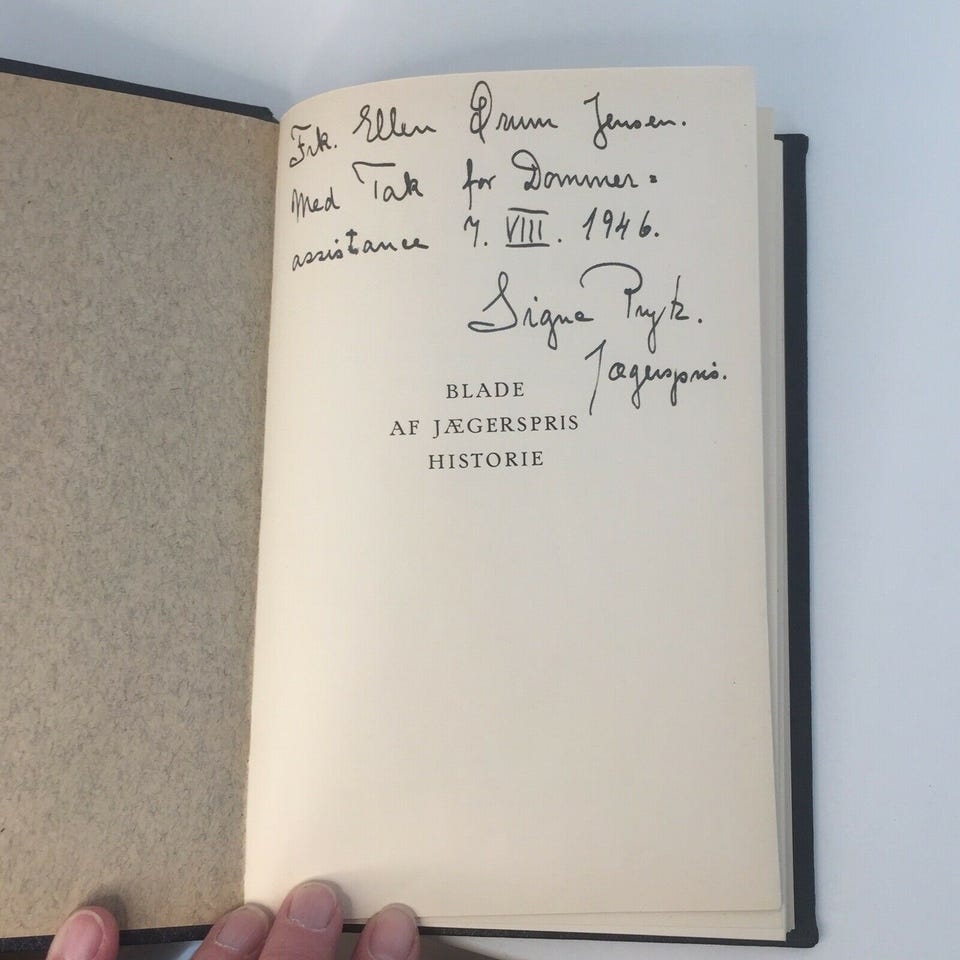 Frk. Ellen Drum Jensen.
Med Tak for Dommer=
assistance 7. VIII. 1946.
Signe Prytz.
Jægerspris.
BLADE
AF JÆGERSPRIS
HISTORIE